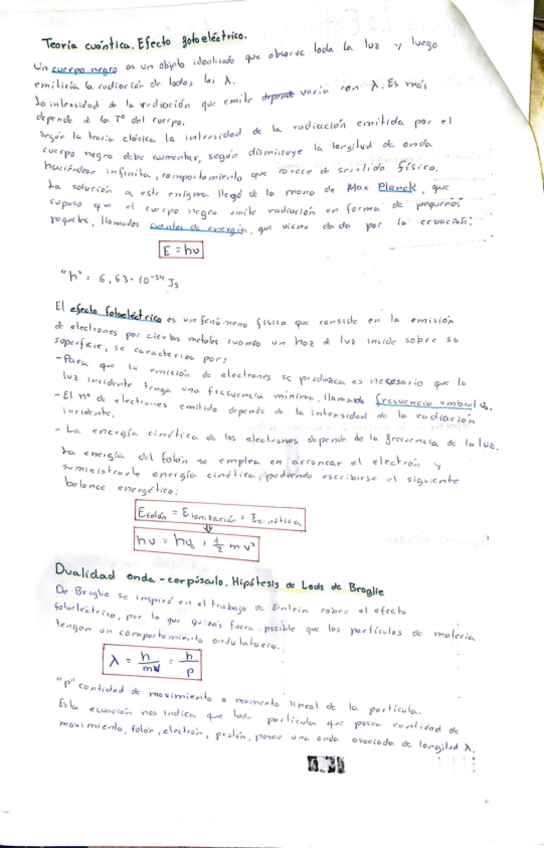 Teoría cuántica. Efecto fotoeléctrico.
Un cuerpo negro es un objeto idealizado que absorve toda la luz y luego
emitiría la radiación de todas las λ.
La intensidad de la radiación que emite depende varía con λ. Es más
depende de la Tº del cuerpo.
Según la teoría clásica la intensidad de la radiación emitida por el
cuerpo negro debe aumentar, según disminuye la longitud de onda
haciéndose infinita, comportamiento que carece de sentido físico.
La solución a este enigma llegó de la mano de Max Planck, que
supuso que el cuerpo negro emite radiación en forma de pequeños
paquetes, llamados cuantos de energía, que viene dado por la ecuación:
E = hν
"h" = 6,63·10⁻³⁴ Js
El efecto fotoeléctrico es un fenómeno físico que consiste en la emisión
de electrones por ciertos metales cuando un haz de luz incide sobre su
superficie, se caracteriza por:
- Para que la emisión de electrones se produzca es necesario que la
luz incidente tenga una frecuencia mínima, llamada frecuencia umbral ν₀.
- El nº de electrones emitido depende de la intensidad de la radiación
incidente.
- La energía cinética de los electrones depende de la frecuencia de la luz.
La energía del fotón se emplea en arrancar el electrón y
suministrarle energía cinética, pudiendo escribirse el siguiente
balance energético:
Efotón = Eionización + Ecinética
hν = hν₀ + 1/2 mv²
Dualidad onda-corpúsculo. Hipótesis de Louis de Broglie
De Broglie se inspiró en el trabajo de Einstein sobre el efecto
fotoeléctrico, por lo que quizás fuera posible que las partículas de materia
tengan un comportamiento ondulatorio.
λ = h/mv = h/p
"p" cantidad de movimiento o momento lineal de la partícula.
Esta ecuación nos indica que toda partícula que posea cantidad de
movimiento, fotón, electrón, protón, posee una onda asociada de longitud λ.